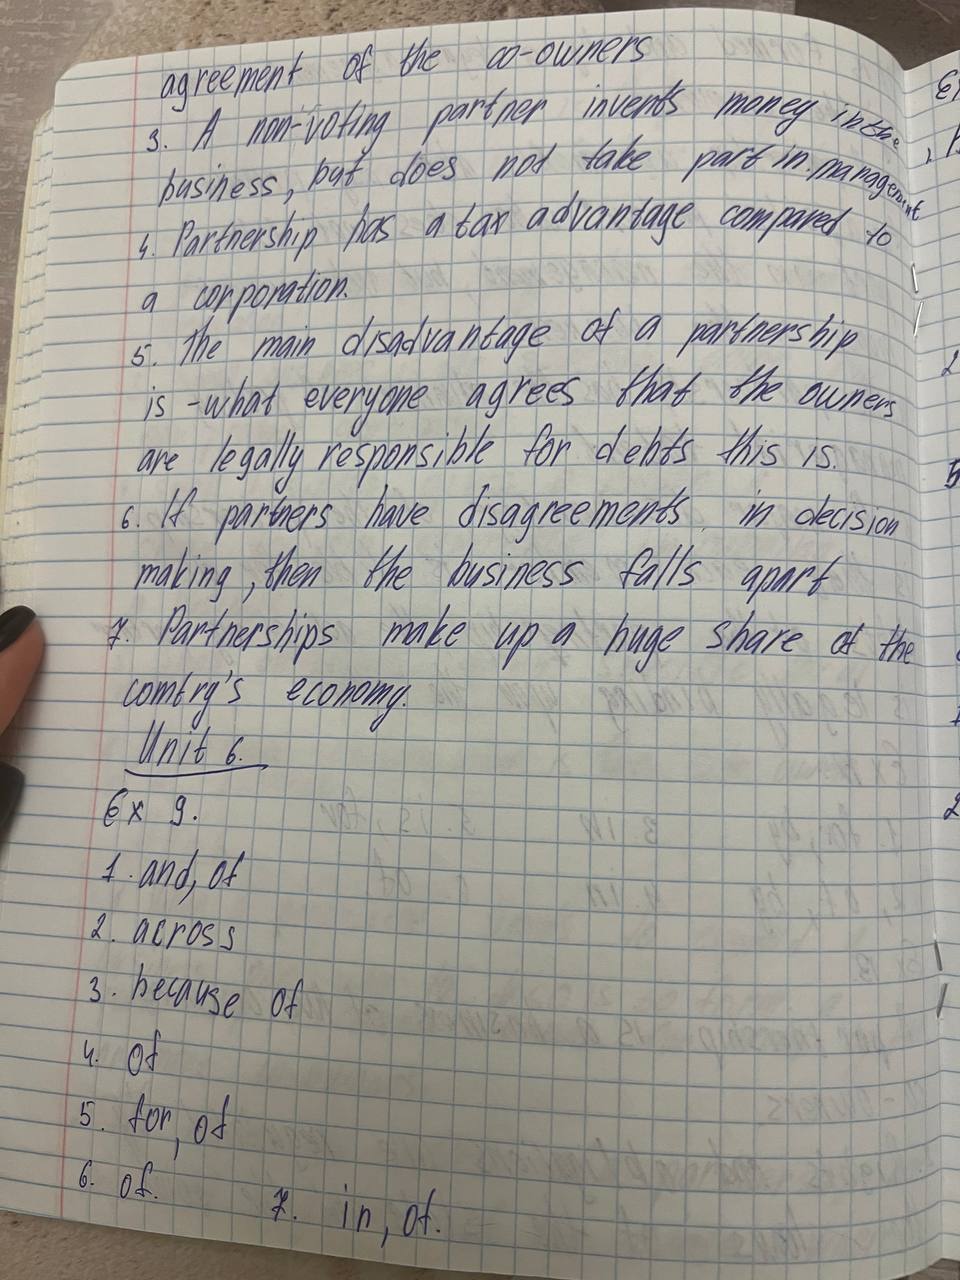 agreement of the co-owners
3. A non-voting partner invents money in the
business, but does not take part in management
4. Partnership has a tax advantage compared to
a corporation.
5. The main disadvantage of a partnership
is - what everyone agrees that the owners
are legally responsible for debts this is.
6. If partners have disagreements in decision
making, then the business falls apart
7. Partnerships make up a huge share of the
comtry's economy.
Unit 6.
Ex 9.
1. and, of
2. across
3. because of
4. of
5. for, of
6. of. 7. in, of.